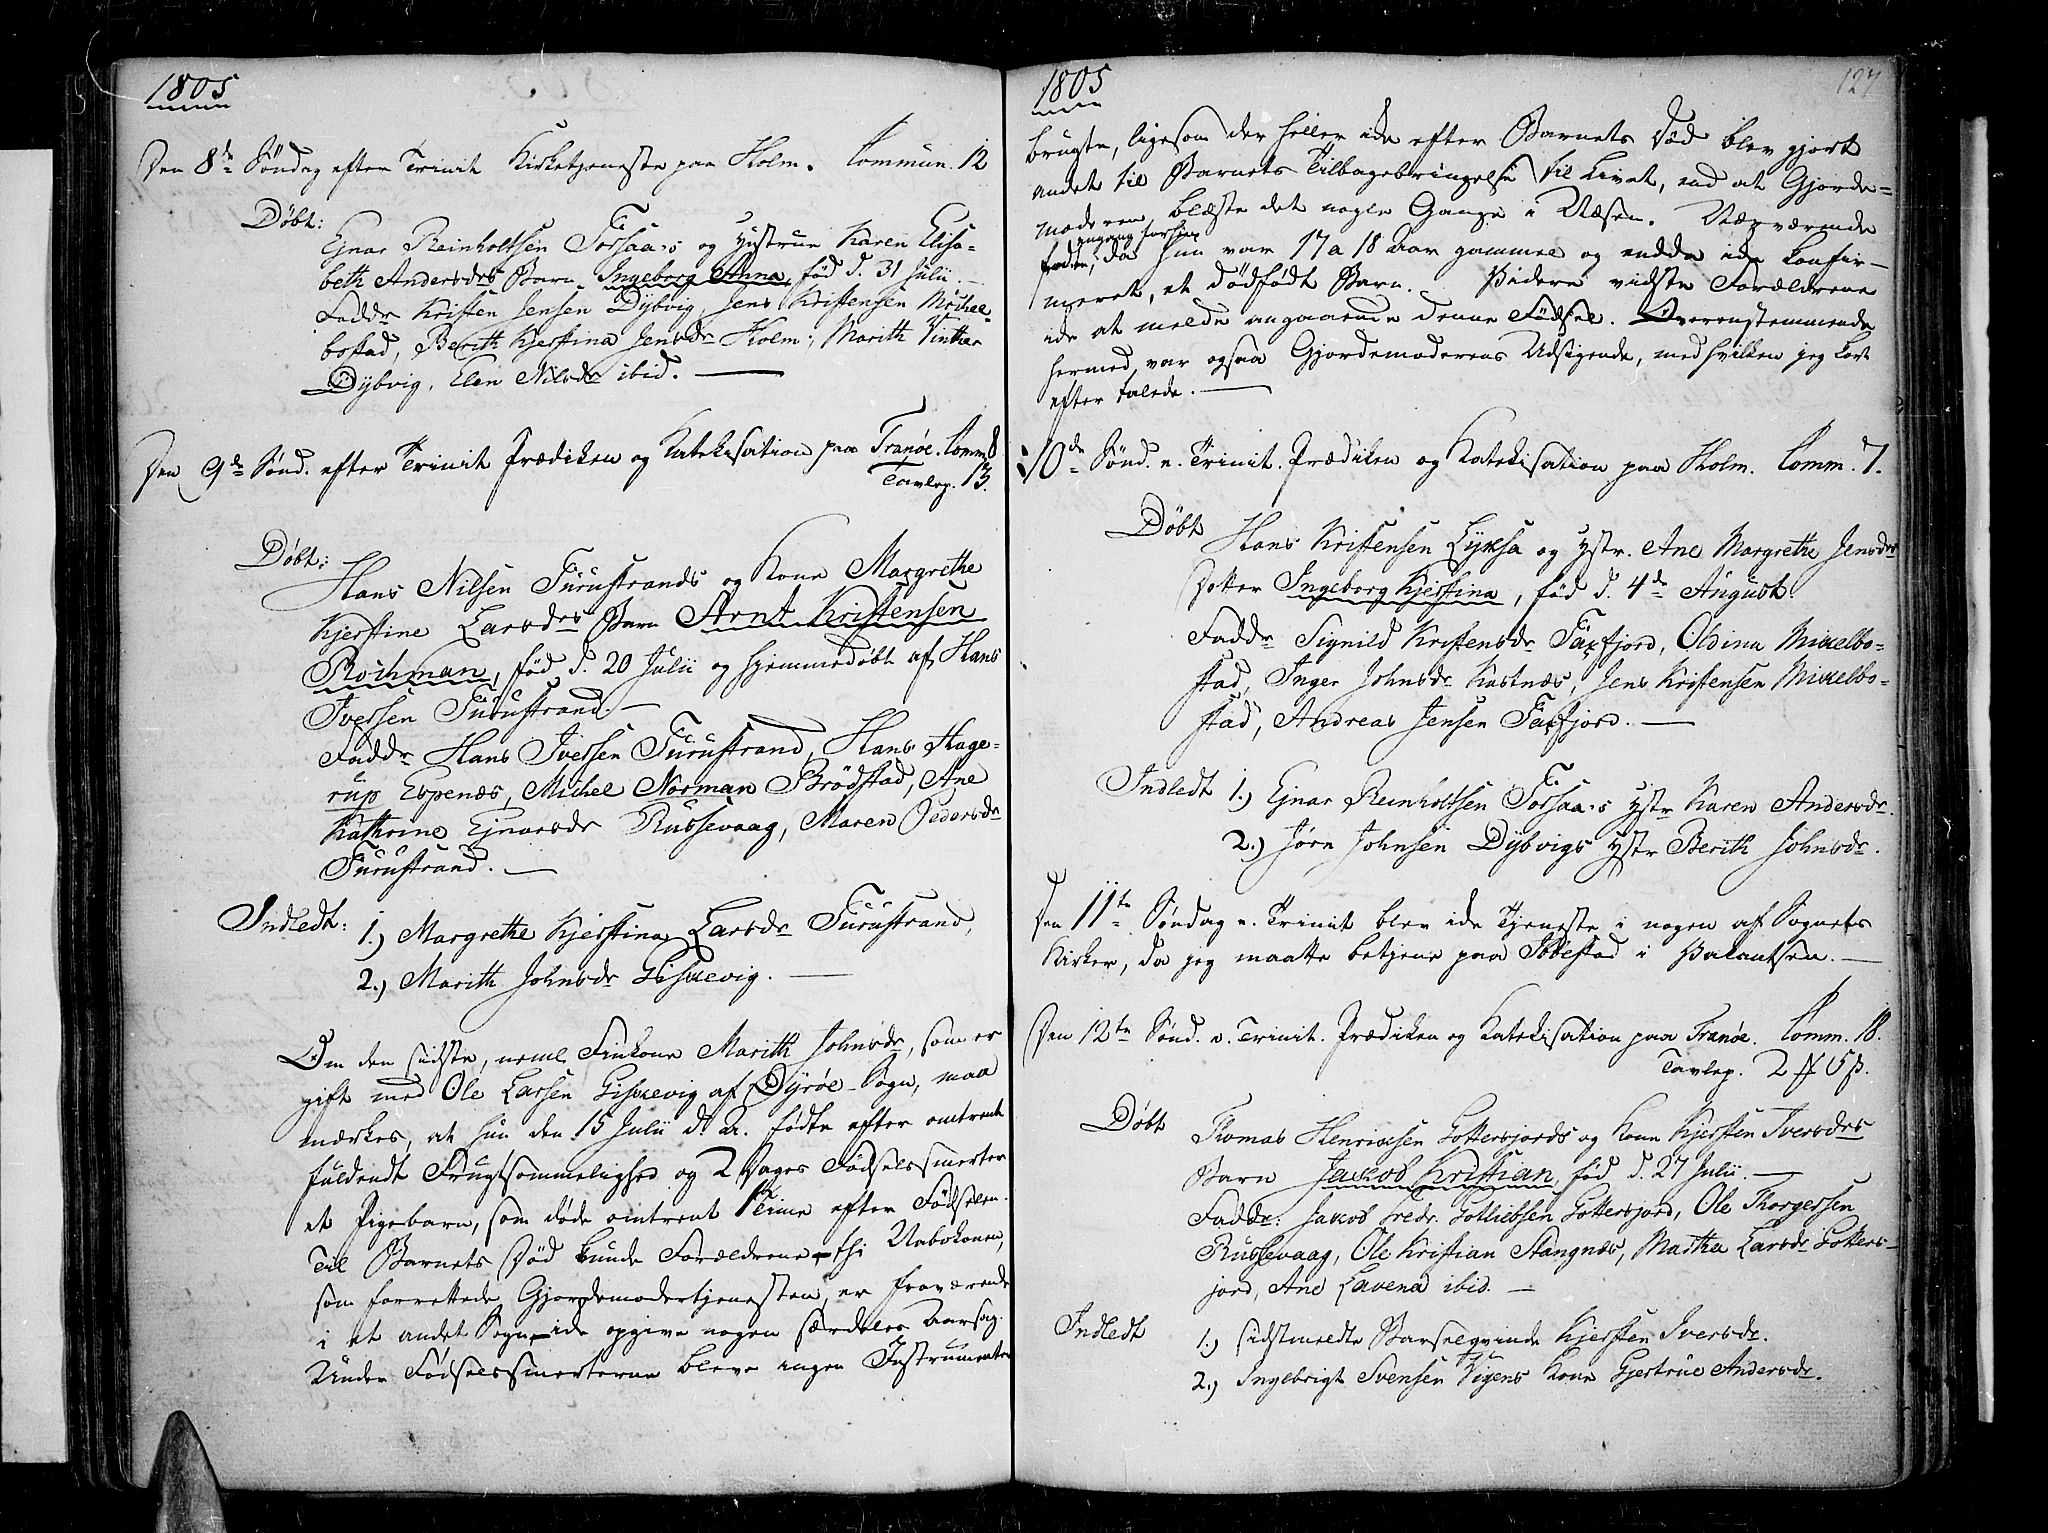 1805
Den 8de Søndag efter Trinit Kirketjeneste paa Holm. Commun. 12
Døbt:
Ejnar Reinholtsen Forsaa:s og Hustrue Karen Elisa-
beth Andersdrs Barn Ingeborg Anna, fød d. 31 Julii.
Faddr Kristen Jensen Dybvig, Jens Kristensen Mickel-
bostad, Berith Kjerstina Jensdr Holm, Marith Vinther
Dybvig, Elen Nilsdr ibid.
Den 9de Sønd. efter Trinit Prædiken og Katekisation paa Tranøe. Comm 8
Tavlep. 13.
Døbt:
Hans Nilsen Furustrands og Kone Margrethe
Kjerstine Larsdrs Barn Arnt Kristensen
Rochman, fød d. 20 Julii og hjemmedøbt af Hans
Iversen Furustrand.
Faddr Hans Iversen Furustrand, Hans Hage-
rup Espenæs, Michel Norman Brødstad, Ane
Kathrine Ejnarsdr Russevaag, Maren Pedersdr
Furustrand.
Indledt: 1.) Margrethe Kjerstina Larsdr Furustrand,
2.) Marith Johnsdr Giskevig.
Om den sidste, neml. Finkone Marith Johnsdr, som er
gift med Ole Larsen Giskevig af Dyrøe Sogn, maa
mærkes, at hun den 15 Julii d. A. fødte efter omtrent
fuldendt Frugtsommelighed og 2 Dages Fødselssmerter
et Pigebarn, som døde omtrent 1 Time efter Fødselen.
Til Barnets Død kunde Forældrene - thi Nabokonen,
som forrettede Gjordemodertjenesten, er fraværende
i et andet Sogn - ikke opgive nogen særdeles Aarsag.
Under Fødselssmerterne bleve ingen Instrumenter
1805
127
brugte, ligesom der heller ikke efter Barnets Død blev gjort
andet til Barnets Tilbagebringelse til Livet, end at Gjorde-
moderen blæste det nogle Gange i Næsen. Nærværende
engang
da hun var 17 a 18 Aar gammel og endda ikke konfir-
meret, et dødfødt Barn. Videre vidste Forældrene
ikke at melde angaaende denne Fødsel. Overenstemmende
hermed var ogsaa Gjordemoderens Udsigende, med hvilken jeg kort
efter talede.
10de Sønd. e. Trinit. Prædiken og Katekisation paa Holm. Comm. 7.
Døbt Hans Kristensen Lyksa og Hystr. Ane Margrethe Jensdrs
Dotter Ingeborg Kjerstina, fød d. 4de August.
Faddr Signild Kristensdr Faxfjord, Oldina Mikkelbo-
stad, Inger Johnsdr Kastnæs, Jens Kristensen Mikkelbo-
stad, Andreas Jensen Faxfjord.
Indledt 1.) Ejnar Reinholtsen Forsaa:s Hystr Karen Andersdr.
2.) Jørn Johnsen Dybvigs Hystr Berith Johnsdr.
Den 11te Søndag e. Trinit blev ikke Tjeneste i nogen af Sognets
Kirker, da jeg maatte betjene paa Ibbestad i
Den 12te Sønd. e. Trinit. Prædiken og Katekisation paa Tranøe. Comm. 18.
Tavlep. 2 5 ß.
Døbt Thomas Henriksen Gottesjords og Kone Kjersten Iversdrs
Barn Jakob Kristian, fød d. 27 Julii.
Faddr: Jakob Fredr. Gotliebsen Gottesjord, Ole Thorgersen
Russevaag, Ole Kristian Stangnæs, Martha Larsdr Gottes-
jord, Ane Lavena ibid.
Indledt 1.) Sidstmeldte Barselqvinde Kjersten Iversdr.
2.) Ingebrigt Svensen Vigens Kone Gjertrue Andersdr.